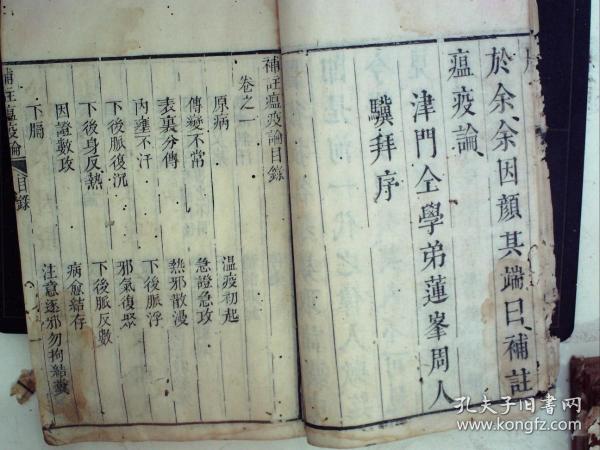 於余、余因顏其端曰、補註
瘟疫論、
津門仝學弟蓮峯周人
驥拜序
補註瘟疫論目錄
卷之一
原病
溫疫初起
傳變不常
急證急攻
表裏分傳
熱邪散漫
內壅不汗
下後脈浮
下後脈復沉
邪氣復聚
下後身反熱
下後脈反數
因證數攻
病愈結存
下膈
注意逐邪勿拘結糞
補註瘟疫論
目錄
一
孔夫子旧書网
www.kongfz.com